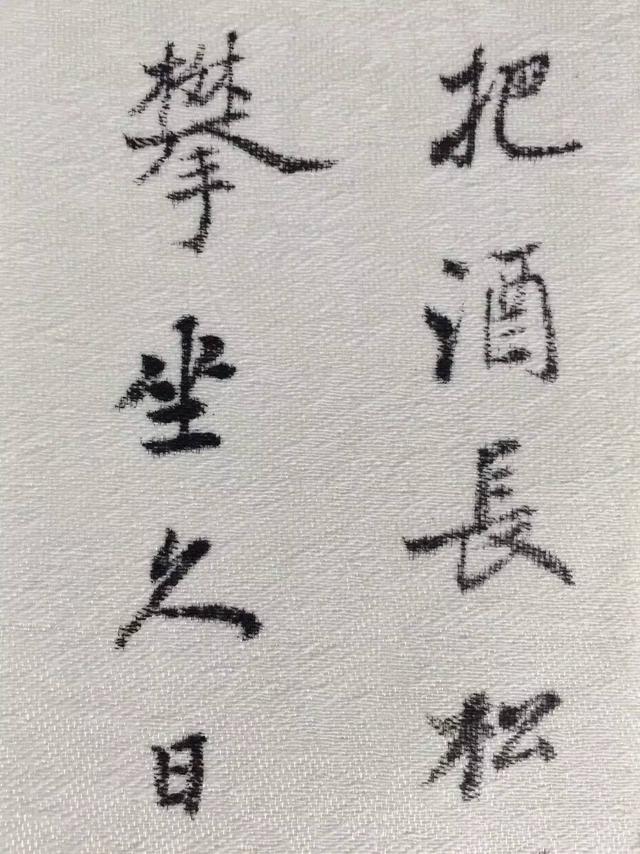 把酒長松
攀坐久日